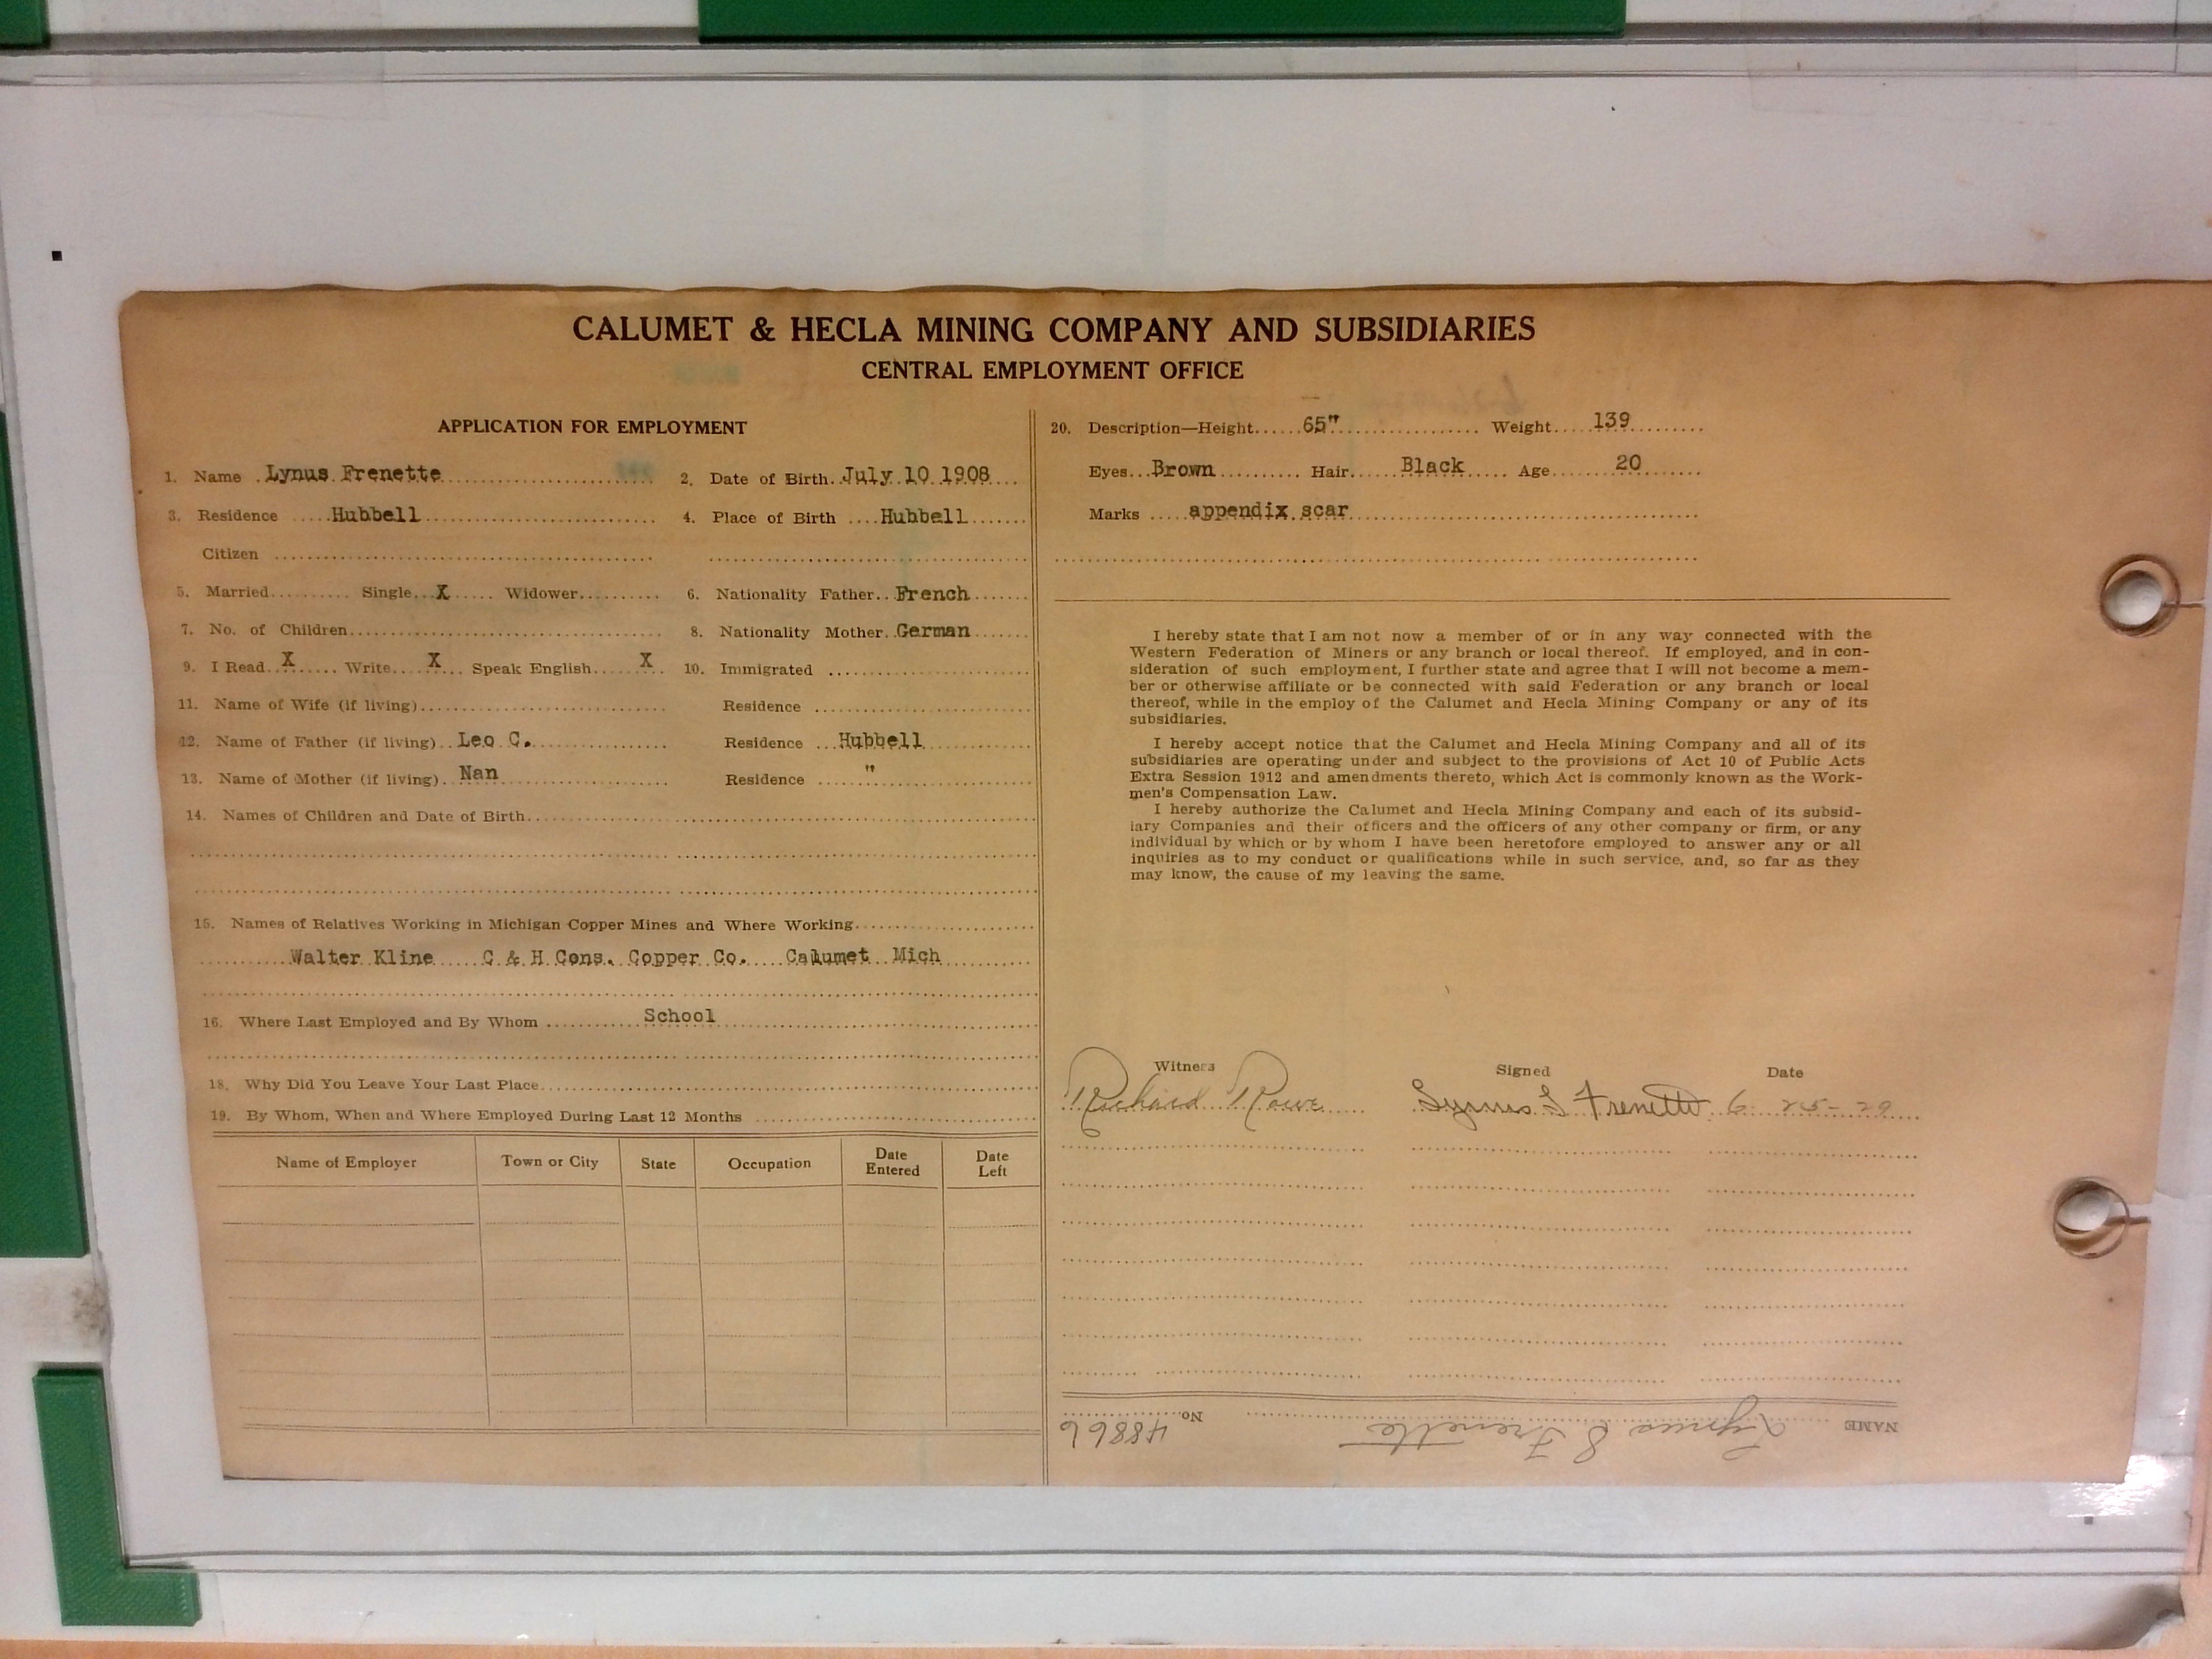 CALUMET & HECLA MINING COMPANY AND SUBSIDIARIES
CENTRAL EMPLOYMENT OFFICE
APPLICATION FOR EMPLOYMENT
1. Name Lynus Frenette 2. Date of Birth July 10 1908
3. Residence Hubbell 4. Place of Birth Hubbell
Citizen
5. Married Single X Widower 6. Nationality Father French
7. No. of Children 8. Nationality Mother German
9. I Read X Write X Speak English X 10. Immigrated
11. Name of Wife (if living) Residence
12. Name of Father (if living) Leo C. Residence Hubbell
13. Name of Mother (if living) Nan Residence "
14. Names of Children and Date of Birth
15. Names of Relatives Working in Michigan Copper Mines and Where Working
Walter Kline C & H Cons. Copper Co. Calumet Mich
16. Where Last Employed and By Whom School
18. Why Did You Leave Your Last Place
19. By Whom, When and Where Employed During Last 12 Months
Name of Employer Town or City State Occupation Date Entered Date Left
20. Description—Height 65" Weight 139
Eyes Brown Hair Black Age 20
Marks appendix scar
I hereby state that I am not now a member of or in any way connected with the
Western Federation of Miners or any branch or local thereof. If employed, and in con-
sideration of such employment, I further state and agree that I will not become a mem-
ber or otherwise affiliate or be connected with said Federation or any branch or local
thereof, while in the employ of the Calumet and Hecla Mining Company or any of its
subsidiaries.
I hereby accept notice that the Calumet and Hecla Mining Company and all of its
subsidiaries are operating under and subject to the provisions of Act 10 of Public Acts
Extra Session 1912 and amendments thereto, which Act is commonly known as the Work-
men's Compensation Law.
I hereby authorize the Calumet and Hecla Mining Company and each of its subsid-
iary Companies and their officers and the officers of any other company or firm, or any
individual by which or by whom I have been heretofore employed to answer any or all
inquiries as to my conduct or qualifications while in such service, and, so far as they
may know, the cause of my leaving the same.
Witness Signed Date
Richard Rowe Lynus S Frenette 6-25-29
NAME Lynus S. Frenette No. 48866